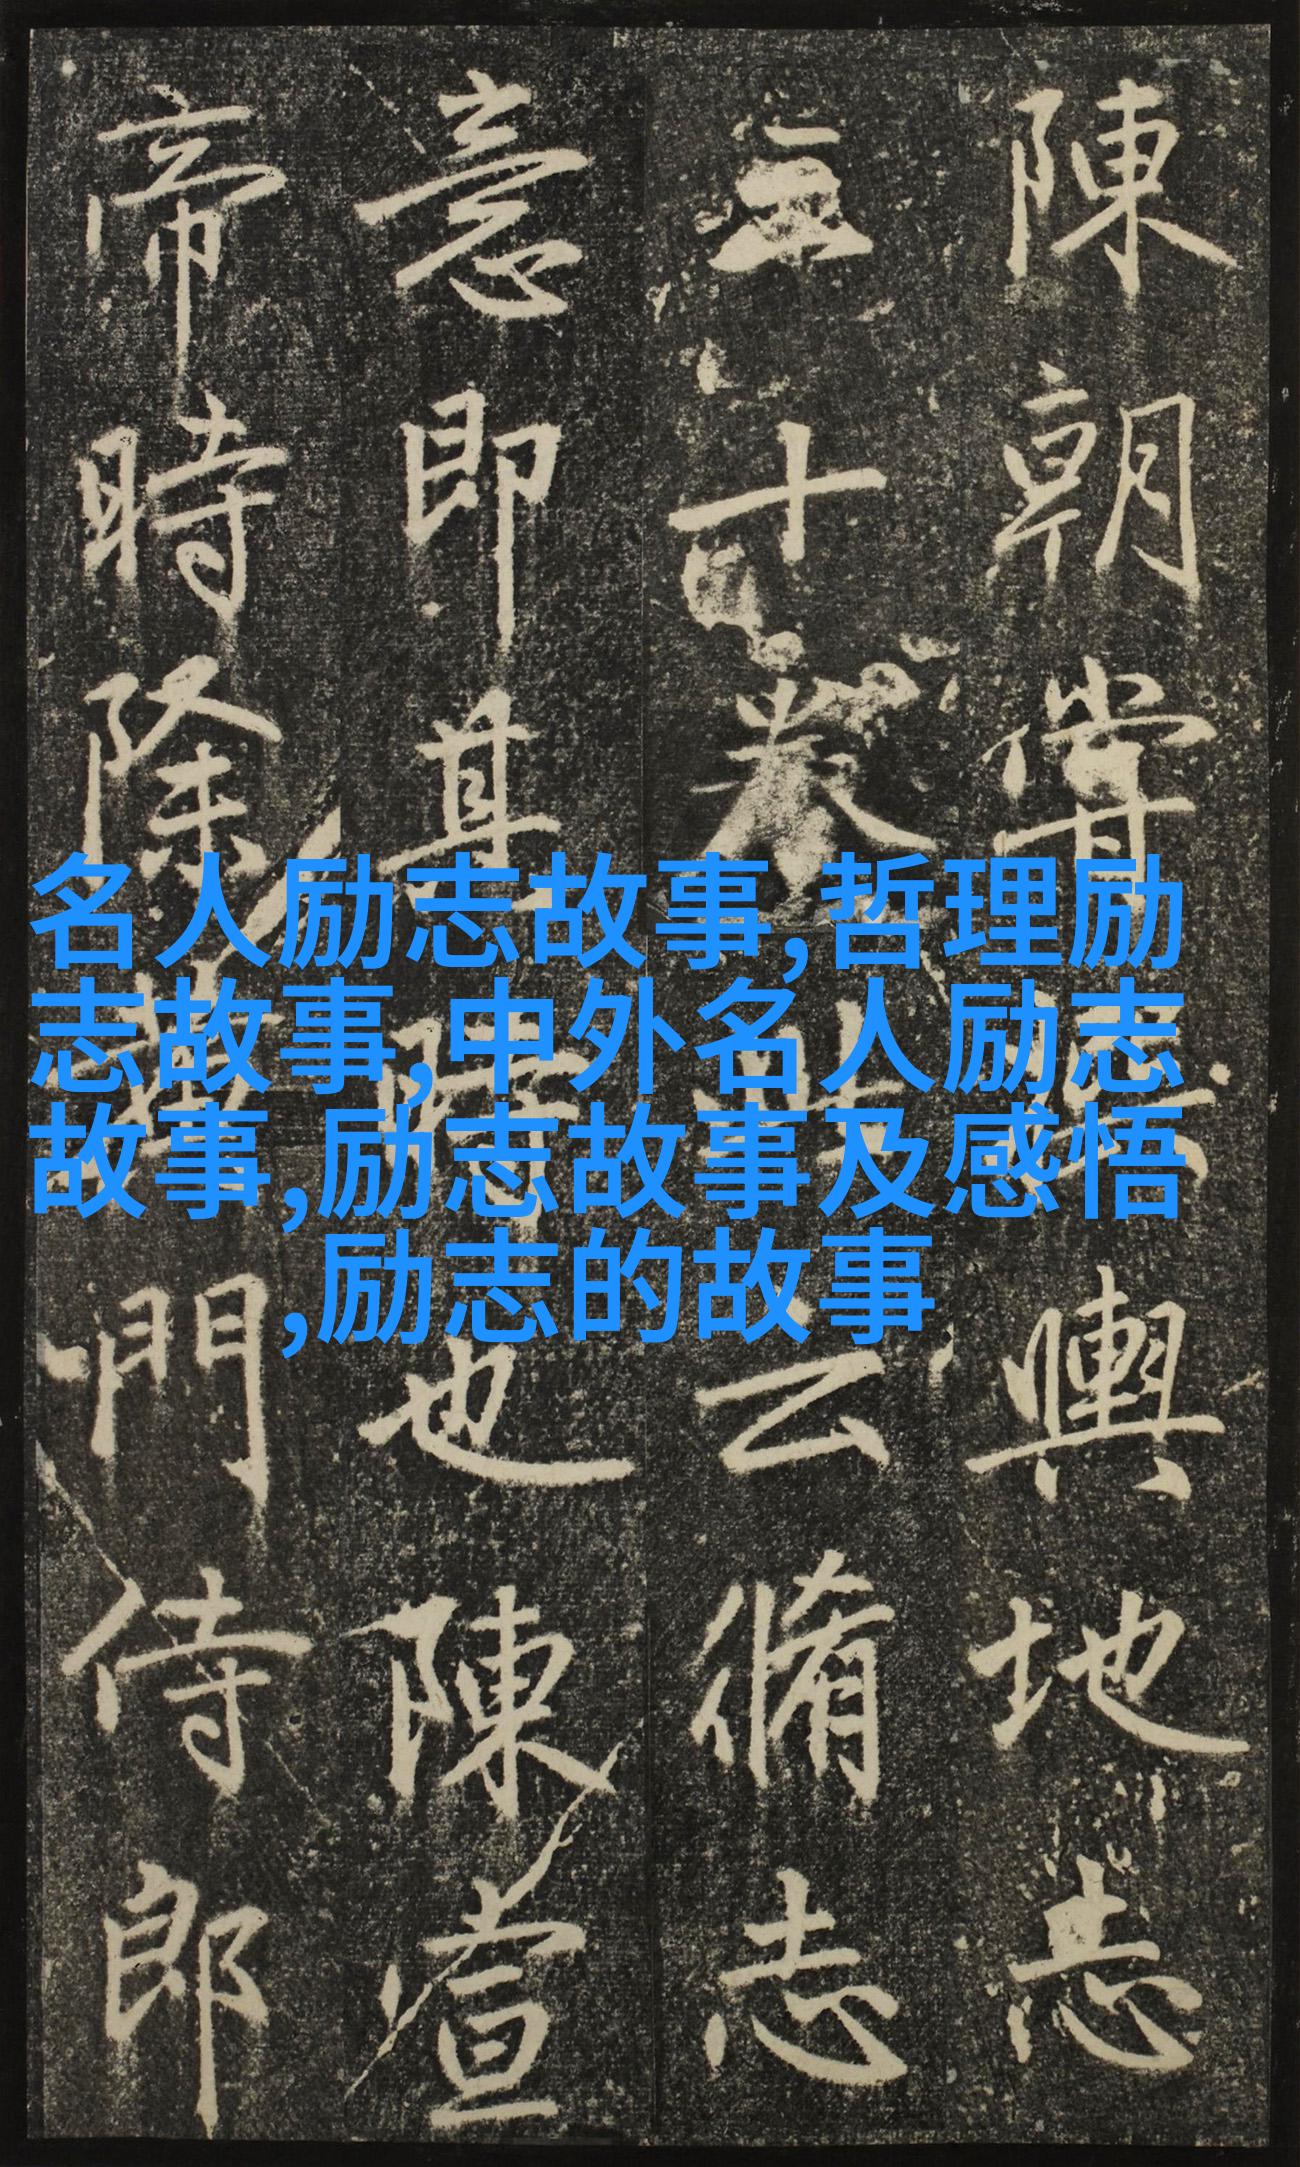 陳朝甞輿地志
三十卷此云脩志
意即其時也陳宣
帝時除黃門侍郎
名人励志故事,哲理励
志故事,中外名人励志
故事,励志故事及感悟
,励志的故事